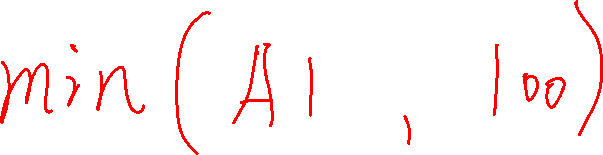 min(A1, 100)